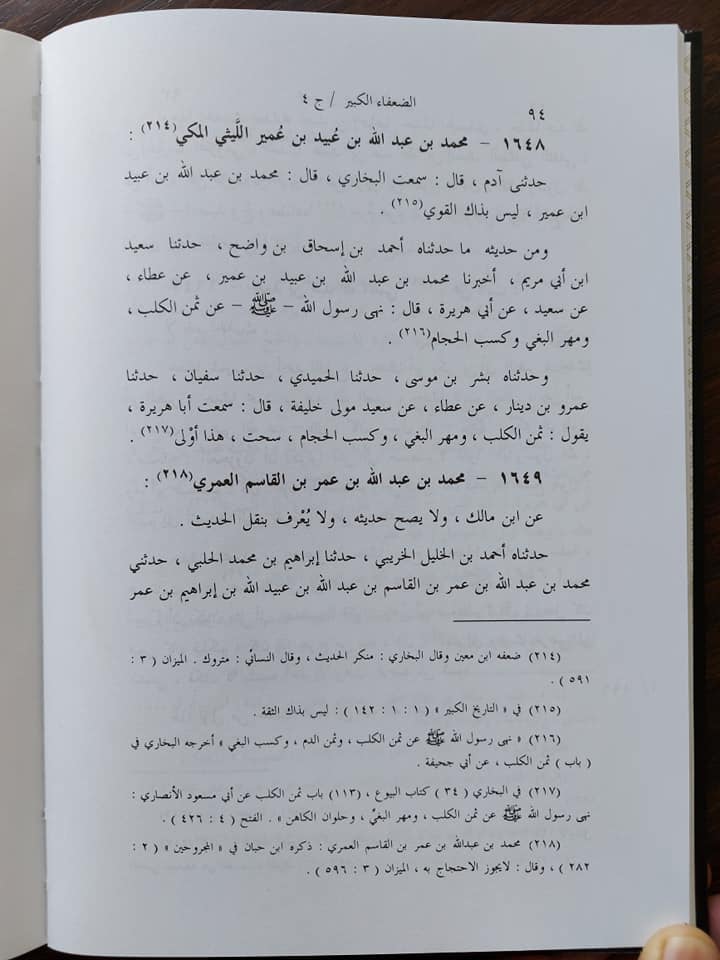 ٩٤
الضعفاء الكبير / ج ٤
١٦٤٨ – محمد بن عبد الله بن عُبيد بن عُمير اللَّيثي المكي(٢١٤) :
حدثنى آدم ، قال : سمعت البخاري ، قال : محمد بن عبد الله بن عبيد
ابن عمير ، ليس بذاك القوي(٢١٥) .
ومن حديثه ما حدثناه أحمد بن إسحاق بن واضح ، حدثنا سعيد
ابن أبي مريم ، أخبرنا محمد بن عبد الله بن عبيد بن عمير ، عن عطاء ،
عن سعيد ، عن أبي هريرة ، قال : نهى رسول الله – ﷺ – عن ثمن الكلب ،
ومهر البغي وكسب الحجام(٢١٦) .
وحدثناه بشر بن موسى ، حدثنا الحميدي ، حدثنا سفيان ، حدثنا
عمرو بن دينار ، عن عطاء ، عن سعيد مولى خليفة ، قال : سمعت أبا هريرة ،
يقول : ثمن الكلب ، ومهر البغي ، وكسب الحجام ، سحت ، هذا أوْلى(٢١٧) .
١٦٤٩ – محمد بن عبد الله بن عمر بن القاسم العمري(٢١٨) :
عن ابن مالك ، ولا يصح حديثه ، ولا يُعْرف بنقل الحديث .
حدثناه أحمد بن الخليل الخريبي ، حدثنا إبراهيم بن محمد الحلبي ، حدثني
محمد بن عبد الله بن عمر بن القاسم بن عبد الله بن عبيد الله بن إبراهيم بن عمر
(٢١٤) ضعفه ابن معين وقال البخاري : منكر الحديث ، وقال النسائي : متروك . الميزان ( ٣ :
٥٩١ ) .
(٢١٥) في « التاريخ الكبير » ( ١ : ١ : ١٤٢ ) : ليس بذاك الثقة .
(٢١٦) « نهى رسول الله ﷺ عن ثمن الكلب ، وثمن الدم ، وكسب البغي » أخرجه البخاري في
( باب ) ثمن الكلب ، عن أبي جحيفة .
(٢١٧) في البخاري ( ٣٤ ) كتاب البيوع ، (١١٣) باب ثمن الكلب عن أبي مسعود الأنصاري :
نهى رسول الله ﷺ عن ثمن الكلب ، ومهر البغيّ ، وحلوان الكاهن » . الفتح ( ٤ : ٤٢٦ ) .
(٢١٨) محمد بن عبدالله بن عمر بن القاسم العمري : ذكره ابن حبان في « المجروحين » ( ٢ :
٢٨٢ ) ، وقال : لايجوز الاحتجاج به ، الميزان ( ٣ : ٥٩٦ ) .